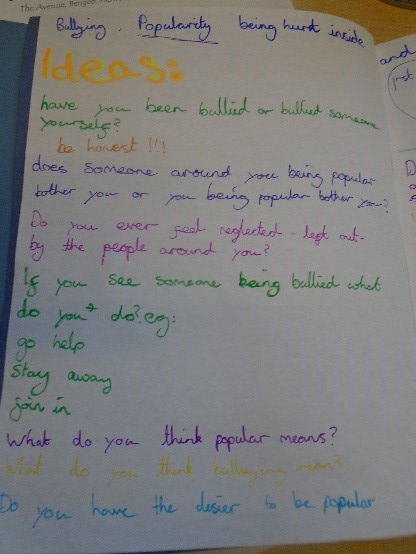 The Avenue, Bengeo,
Bullying, Popularity being hurt inside
Ideas:
have you been bullied or bullied someone
yourself?
be honest !!!
does someone around you being popular
bother you or you being popular bother you?
Do you ever feel neglected - left out -
by the people around you?
If you see someone being bullied what
do you do? eg:
go help
Stay away
join in
What do you think popular means?
What do you think bullying mean?
Do you have the desier to be popular
and